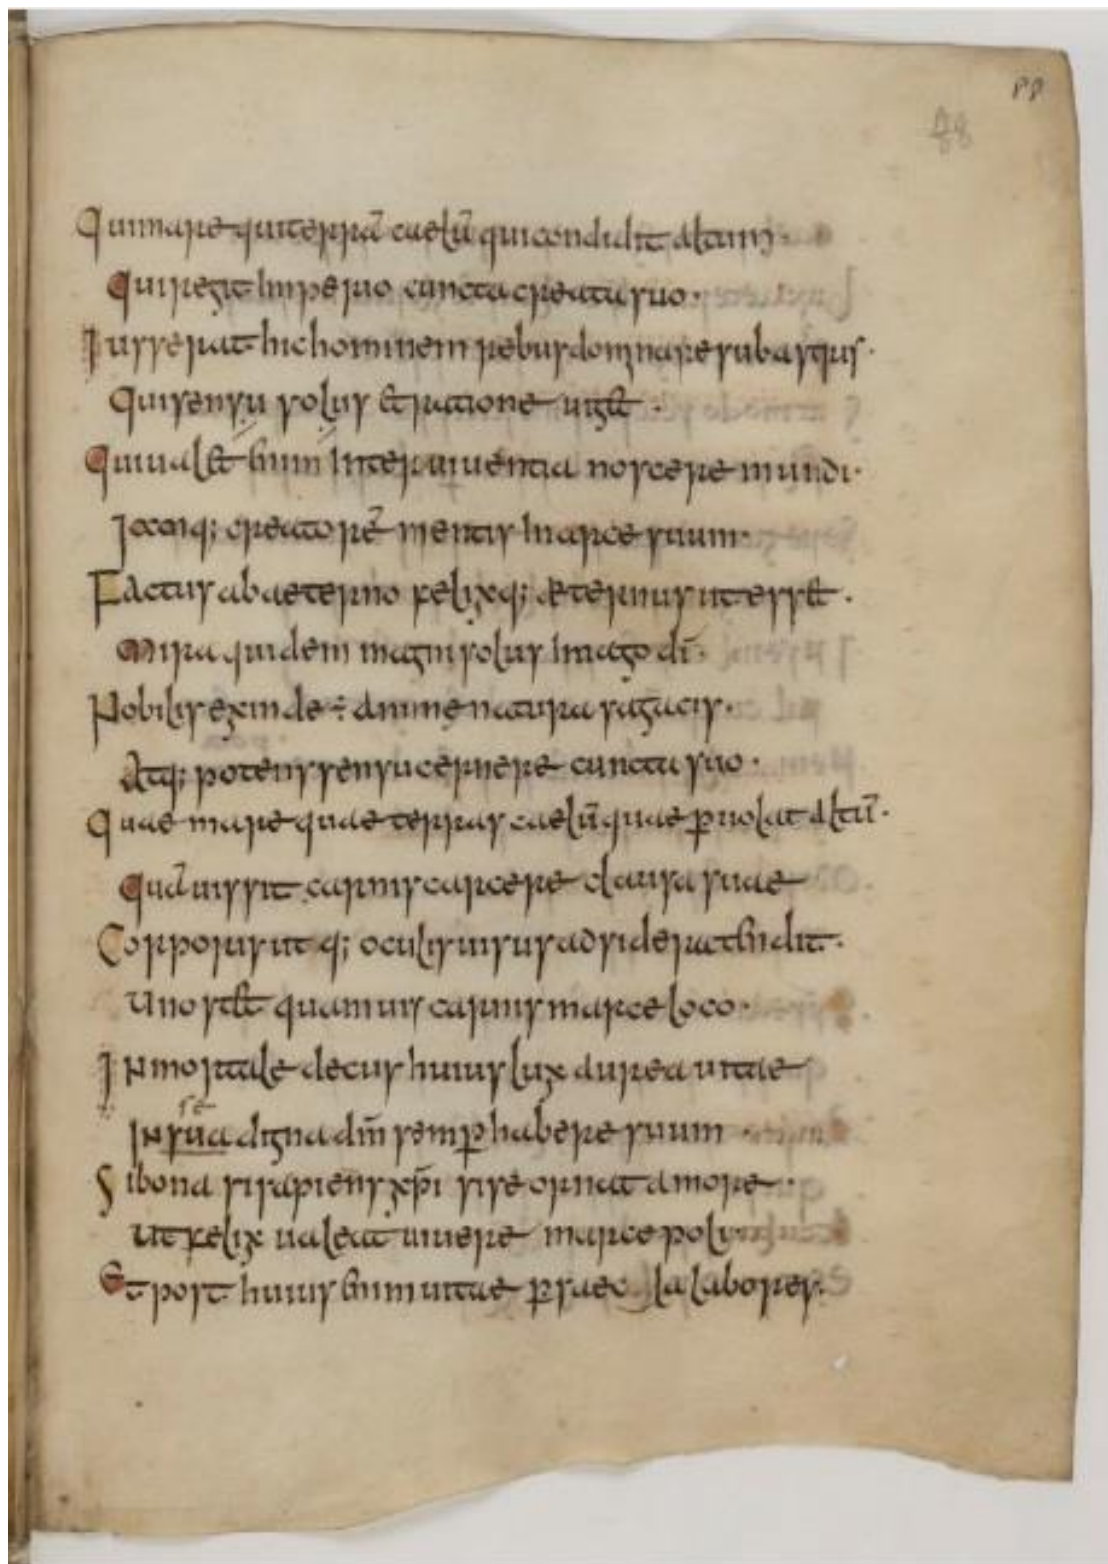 88
88
Qui mare qui terrā caelū qui condidit altum·
Qui regit imperio cuncta creata suo·
Iusserat hic hominem rebus dominare sub astris·
Qui sensu solus et ratione uiget·
Qui ualet hunc inter uiuentia noscere mundi·
Iamq; creatorē mentis in arce suum·
Factus ab aeterno felixq; aeternus ut esset·
Mira quidem magni solus imago dī·
Nobilis exinde ÷ animę natura sagacis·
Atq; potens sensu cernere cuncta suo·
Quae mare quae terras caelū quae puolat altū·
Quā uis sit carnis carcere clausa suae
Corporis utq; oculis uisus ad sidera tendit·
Uno stet quamuis carnis in arce loco·
Inmortale decus huius lux aurea uitae
se
In sua digna dm̄ semp habere suum
Si bona si sapiens xp̄i si se ornat amore·
Ut felix ualeat uiuere in arce poli
Et post huius hunc uitae p saec la labores·